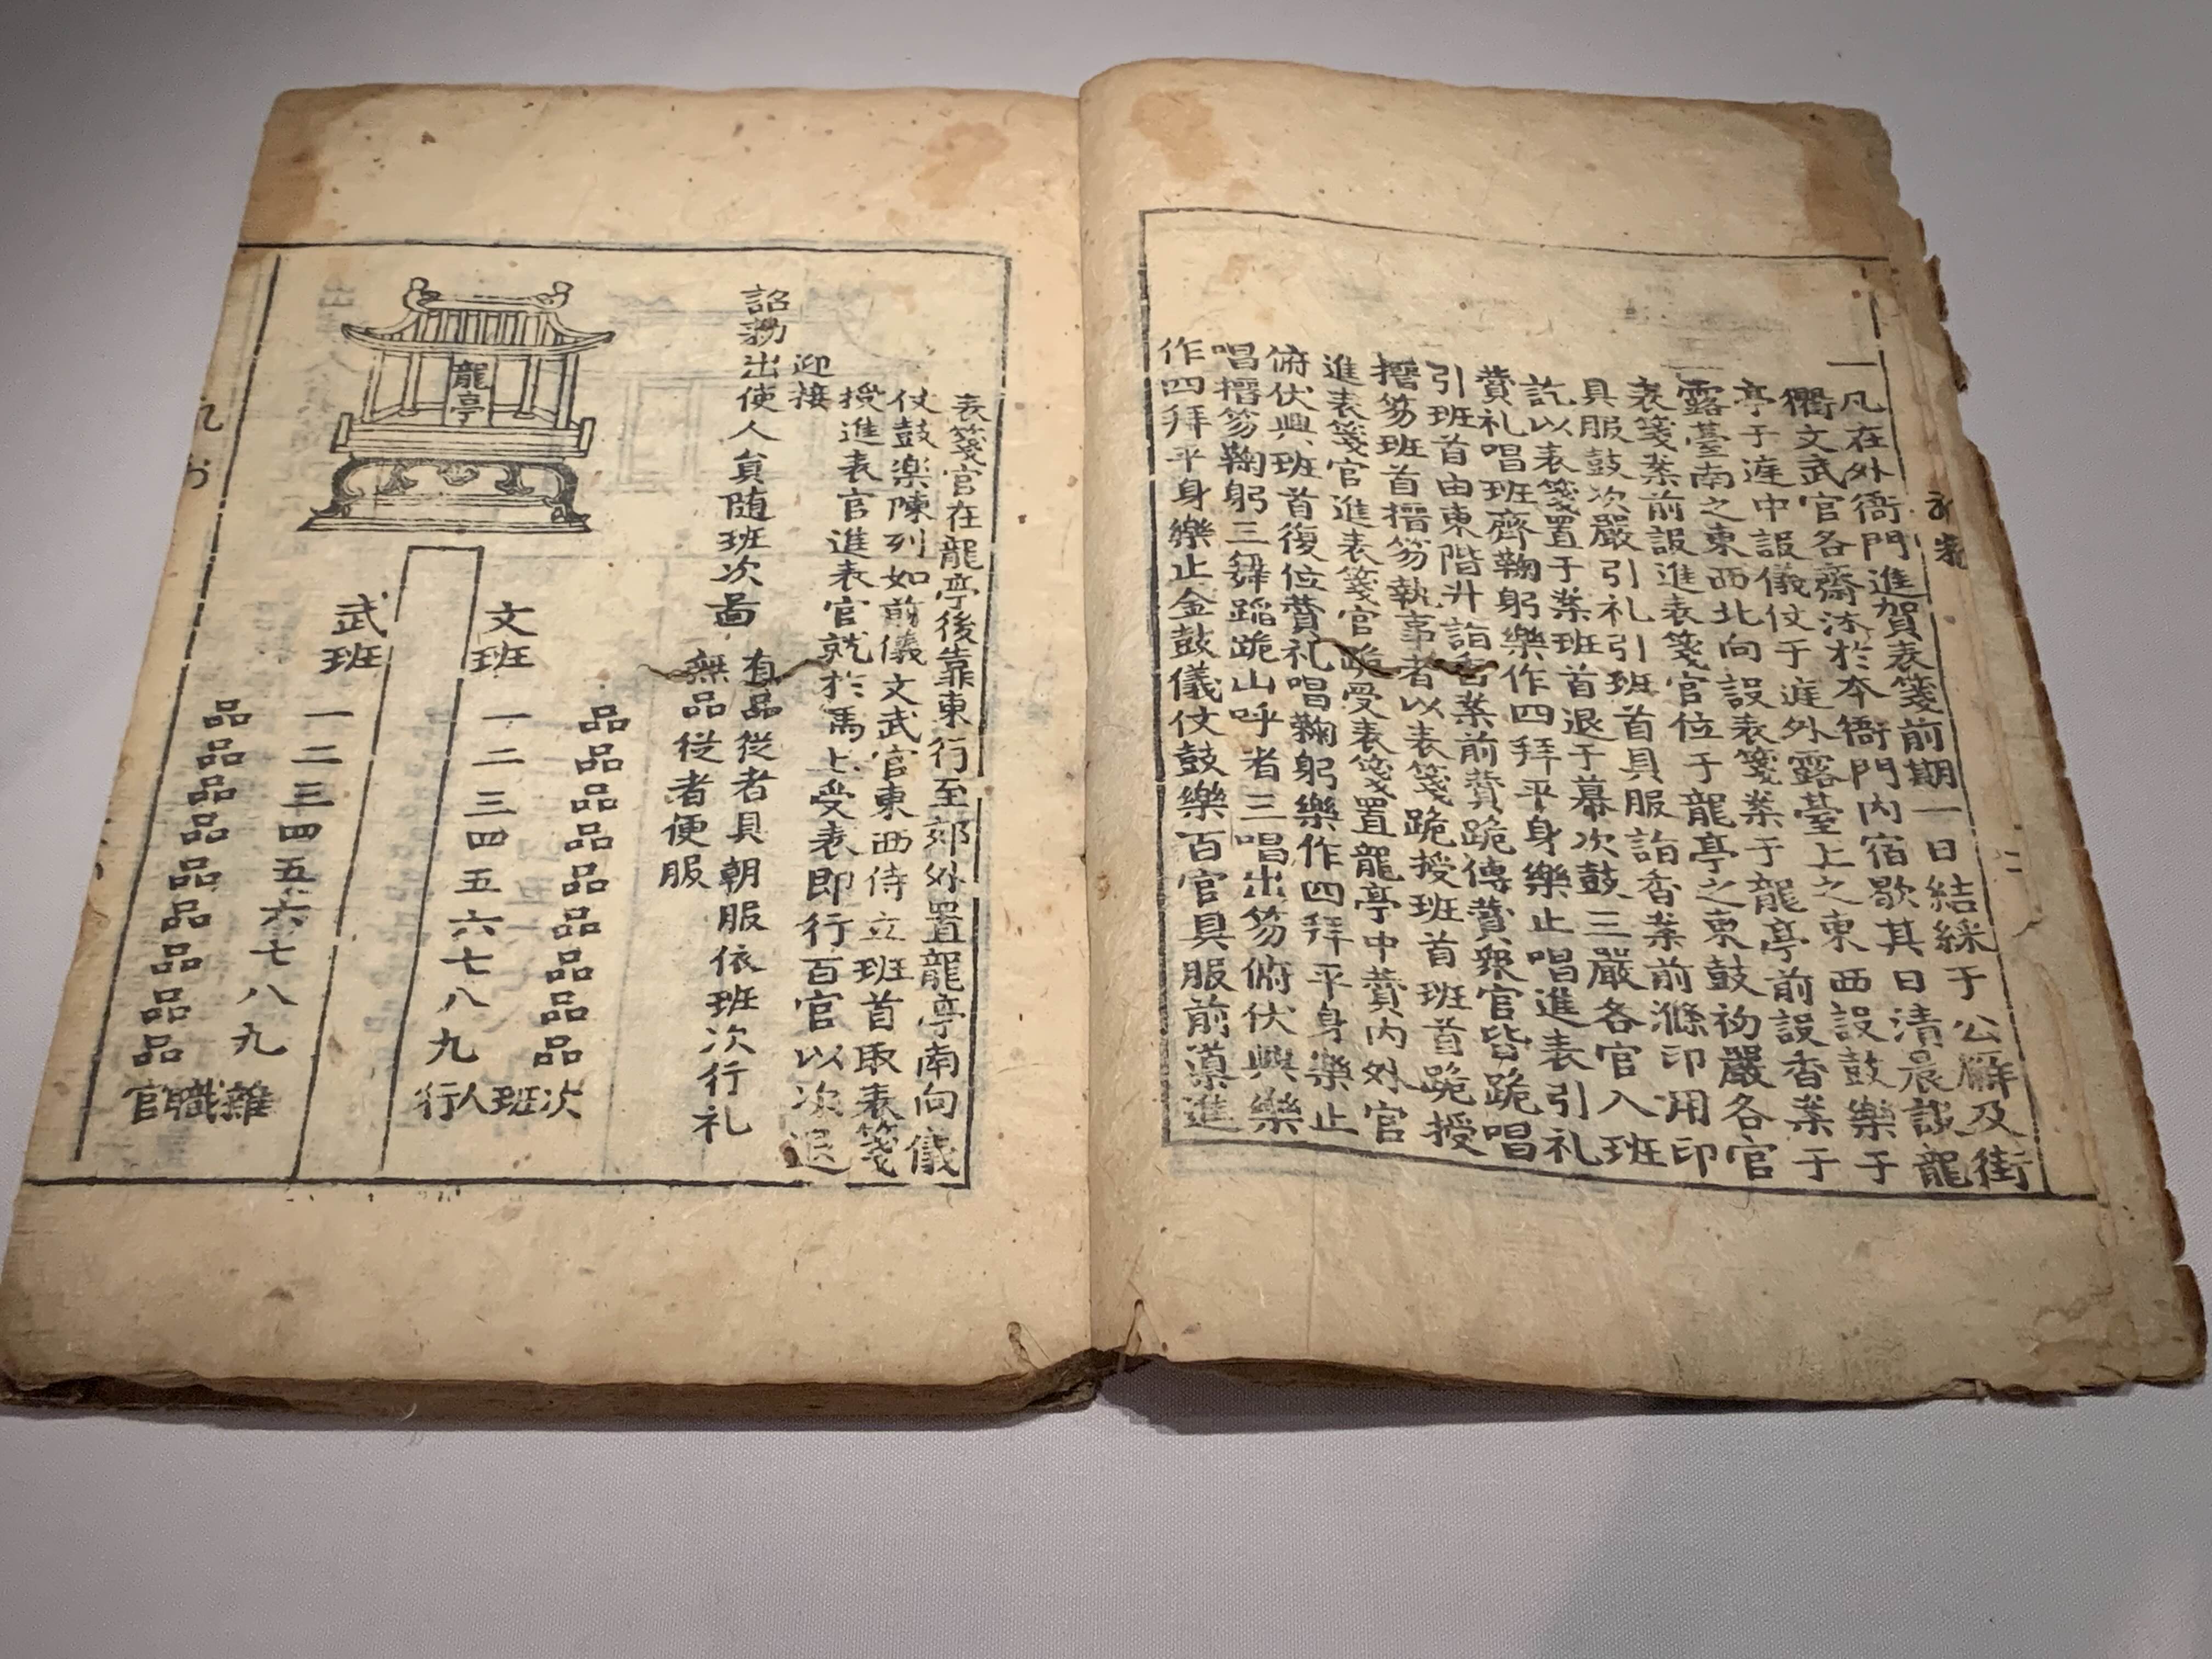 一凡在外衙門進賀表箋前期一日結綵于公廨及街
衢文武官各齋沐於本衙門內宿歇其日清晨設龍
亭于庭中設儀仗于庭外露臺上之東西設鼓樂于
露臺南之東西北向設表箋案于龍亭前設香案于
表箋案前設進表箋官位于龍亭之東鼓初嚴各官
具服鼓次嚴引礼引班首具服詣香案前滌印用印
訖以表箋置于案班首退于幕次鼓三嚴各官入班
賛礼唱班齊鞠躬樂作四拜平身樂止唱進表引礼
引班首由東階升詣香案前賛跪傳賛衆官皆跪唱
搢笏班首搢笏執事者以表箋跪授班首班首跪授
進表箋官進表箋官跪受表箋置龍亭中賛內外官
俯伏興班首復位賛礼唱鞠躬樂作四拜平身樂止
唱搢笏鞠躬三舞蹈跪山呼者三唱出笏俯伏興樂
作四拜平身樂止金鼓儀仗鼓樂百官具服前導進
表箋官在龍亭後靠東行至郊外置龍亭南向儀
仗鼓楽陳列如前儀文武官東西侍立班首取表箋
授進表官進表官就於馬上受表即行百官以次退
迎接
詔勑出使人員随班次啚
有品從者具朝服依班次行礼
無品從者便服
龍亭
文班
品品品品品品品品品
一二三四五六七八九
次班人行
武班
一二三四五六七八九
品品品品品品品品品
雜職官